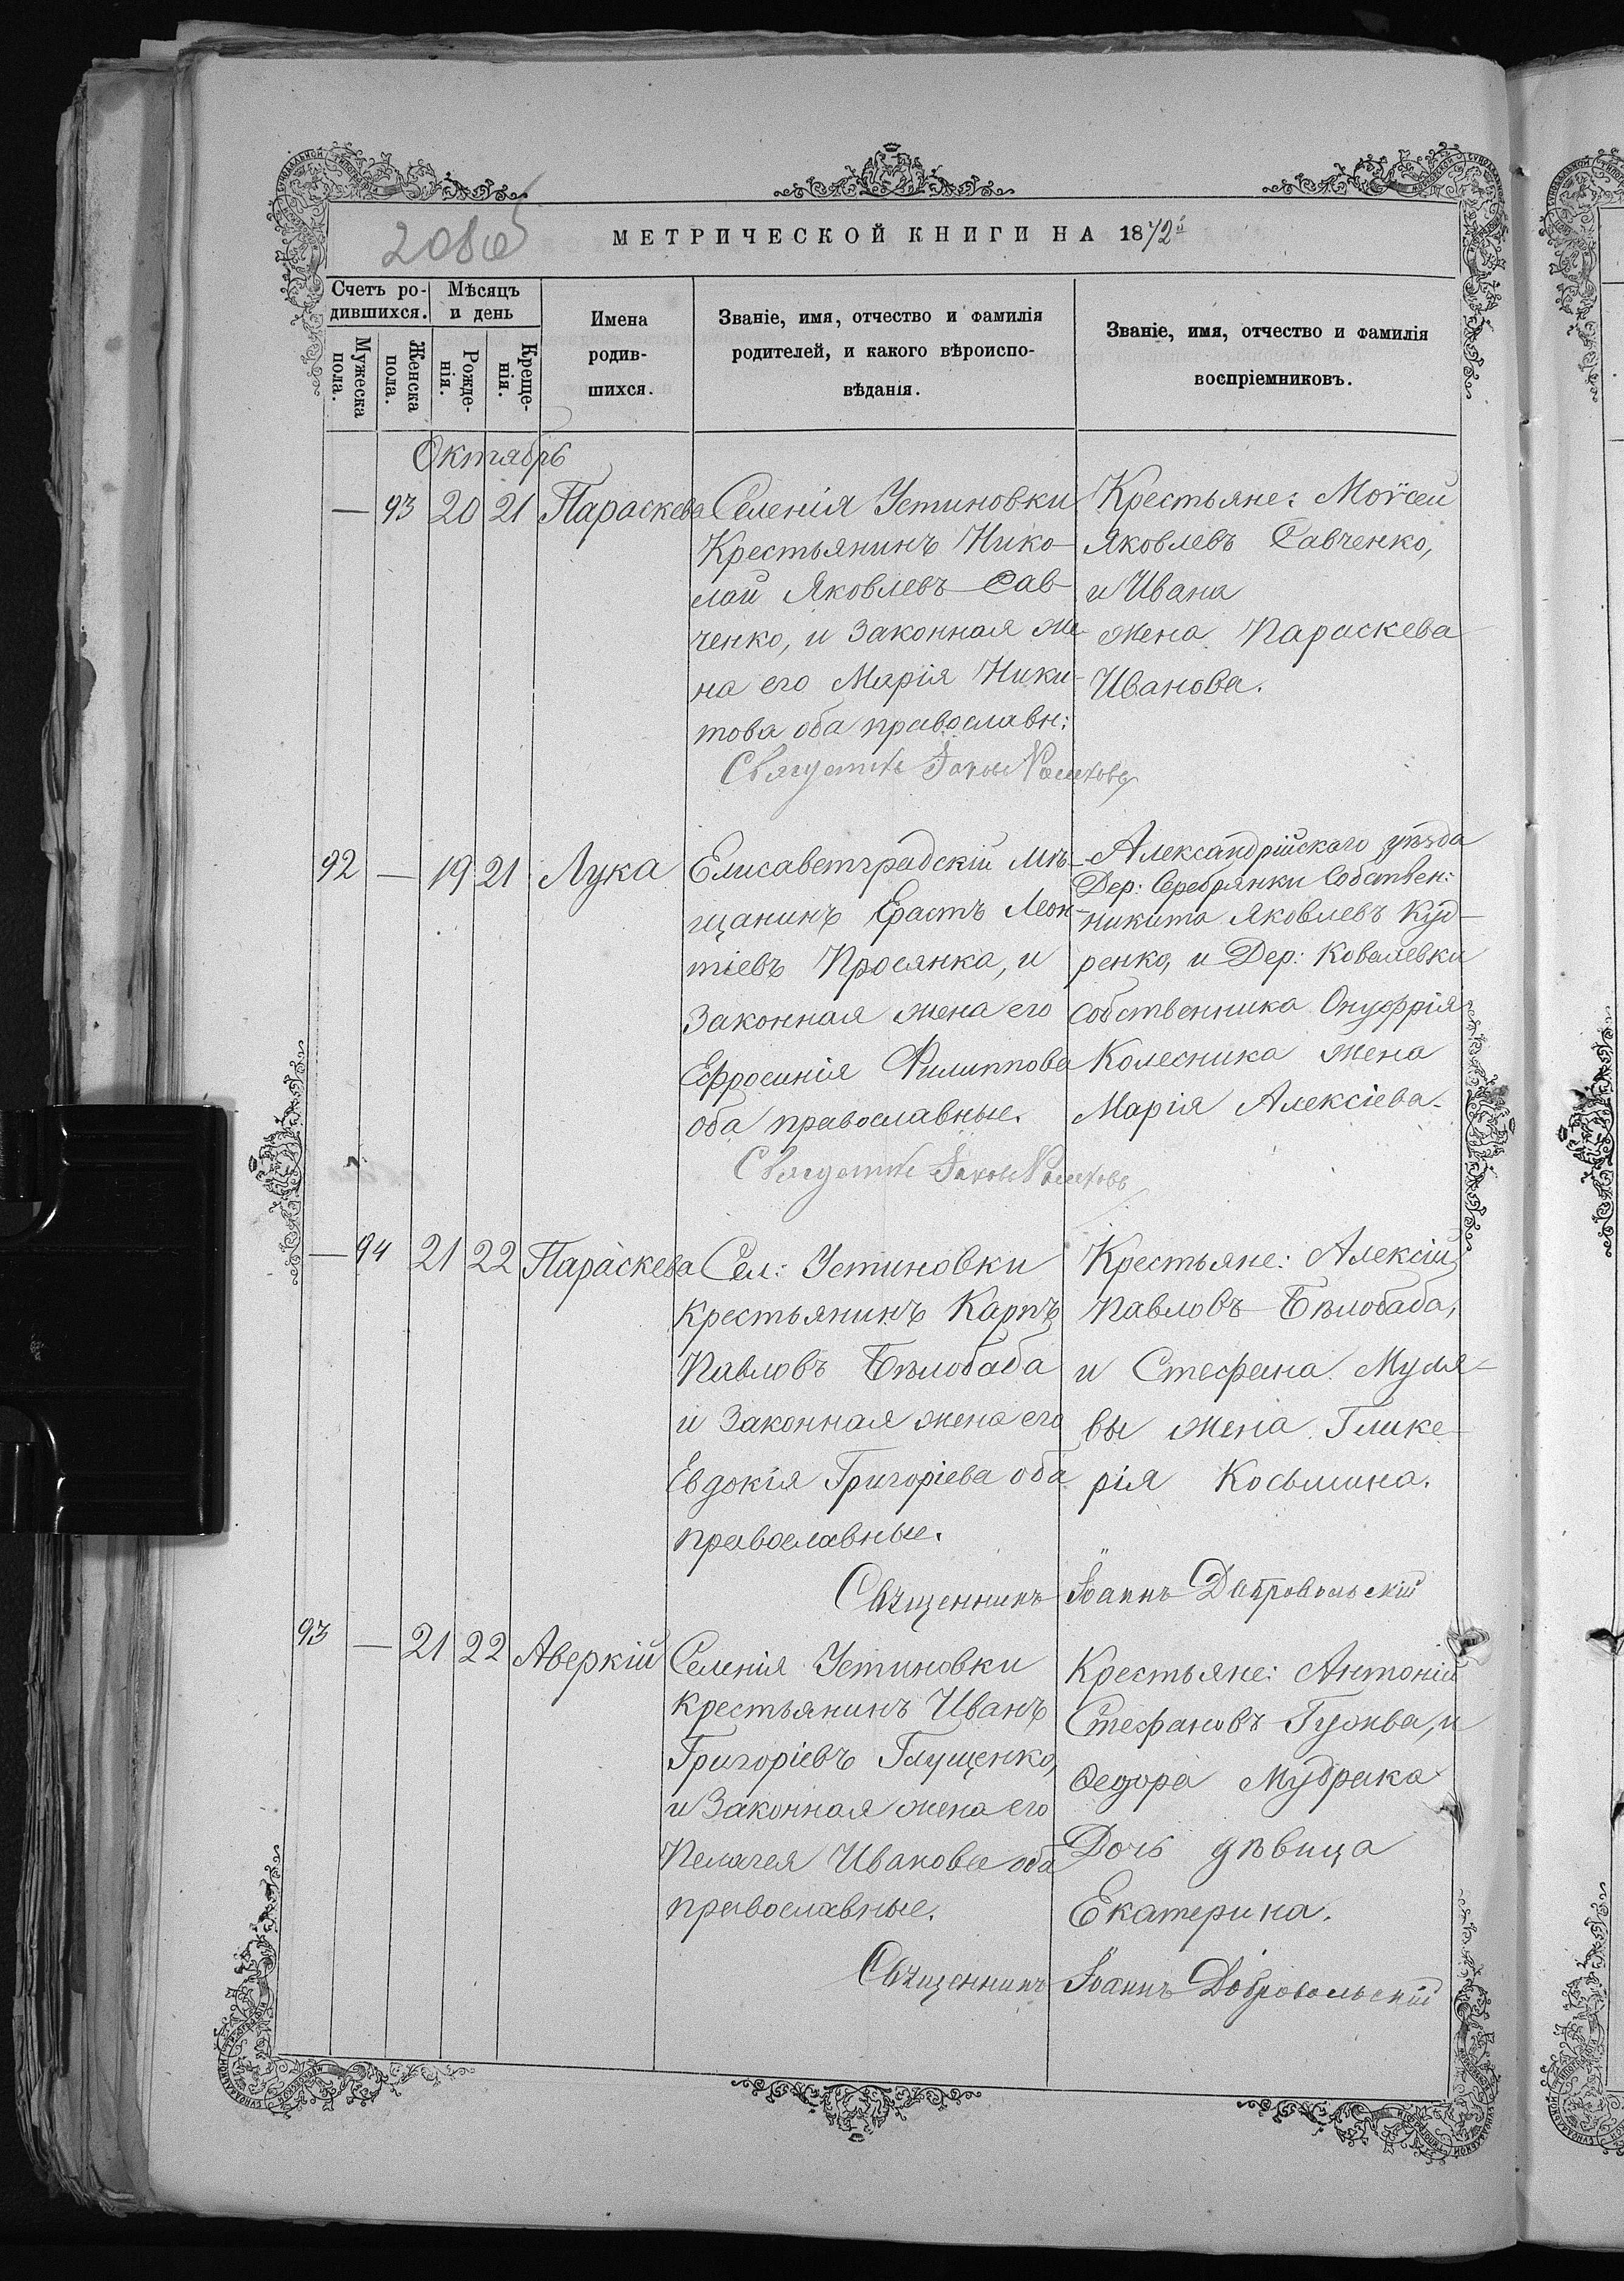 208об
МЕТРИЧЕСКОЙ КНИГИ НА 1872й
Счетъ ро-
дившихся.
Мѣсяцъ
и день
Мужеска
пола.
Женска
пола.
Рожде-
нія.
Креще-
нія.
Имена
родив-
шихся.
Званіе, имя, отчество и фамилія
родителей, и какого вѣроиспо-
вѣданія.
Званіе, имя, отчество и фамилія
воспріемниковъ.
Октябрь
— 93 20 21 Параскева
Селенія Устиновки
Крестьянинъ Нико-
лай Яковлевъ Сав-
ченко, и Законная же-
на его Марія Ники-
това оба православн:
Крестьяне: Моѵсей
Яковлевъ Савченко,
и Ивана
жена Параскева
Иванова.
92 — 19 21 Лука
Елисаветградскій мѣ-
щанинъ Ерастъ Леон-
тіевъ Просянка, и
Законная жена его
Ефросинія Филиппова
оба православные.
Александрійскаго уѣзда
Дер: Серебрянки Собствен:
никита Яковлевъ Куд-
ренко, и Дер: Ковалевки
Собственника Онуфрія
Колесника жена
Марія Алексіева.
— 94 21 22 Параскева
Сел: Устиновки
крестьянинъ Карпъ
Павловъ Бѣлобаба
и Законная жена его
Евдокія Григоріева оба
православные.
Крестьяне: Алексій
Павловъ Бѣлобаба,
и Стефана Муля-
вы жена Глике-
рія Косьмина.
Священникъ Іоаннъ Добровольскій
93 — 21 22 Аверкій
Селенія Устиновки
крестьянинъ Иванъ
Григоріевъ Глущенко,
и Законная жена его
Пелагея Иванова оба
православные.
Крестьяне: Антоній
Стефановъ Гужва, и
Ѳедора Мудрака
Дочь дѣвица
Екатерина.
Священникъ Іоаннъ Добровольскій